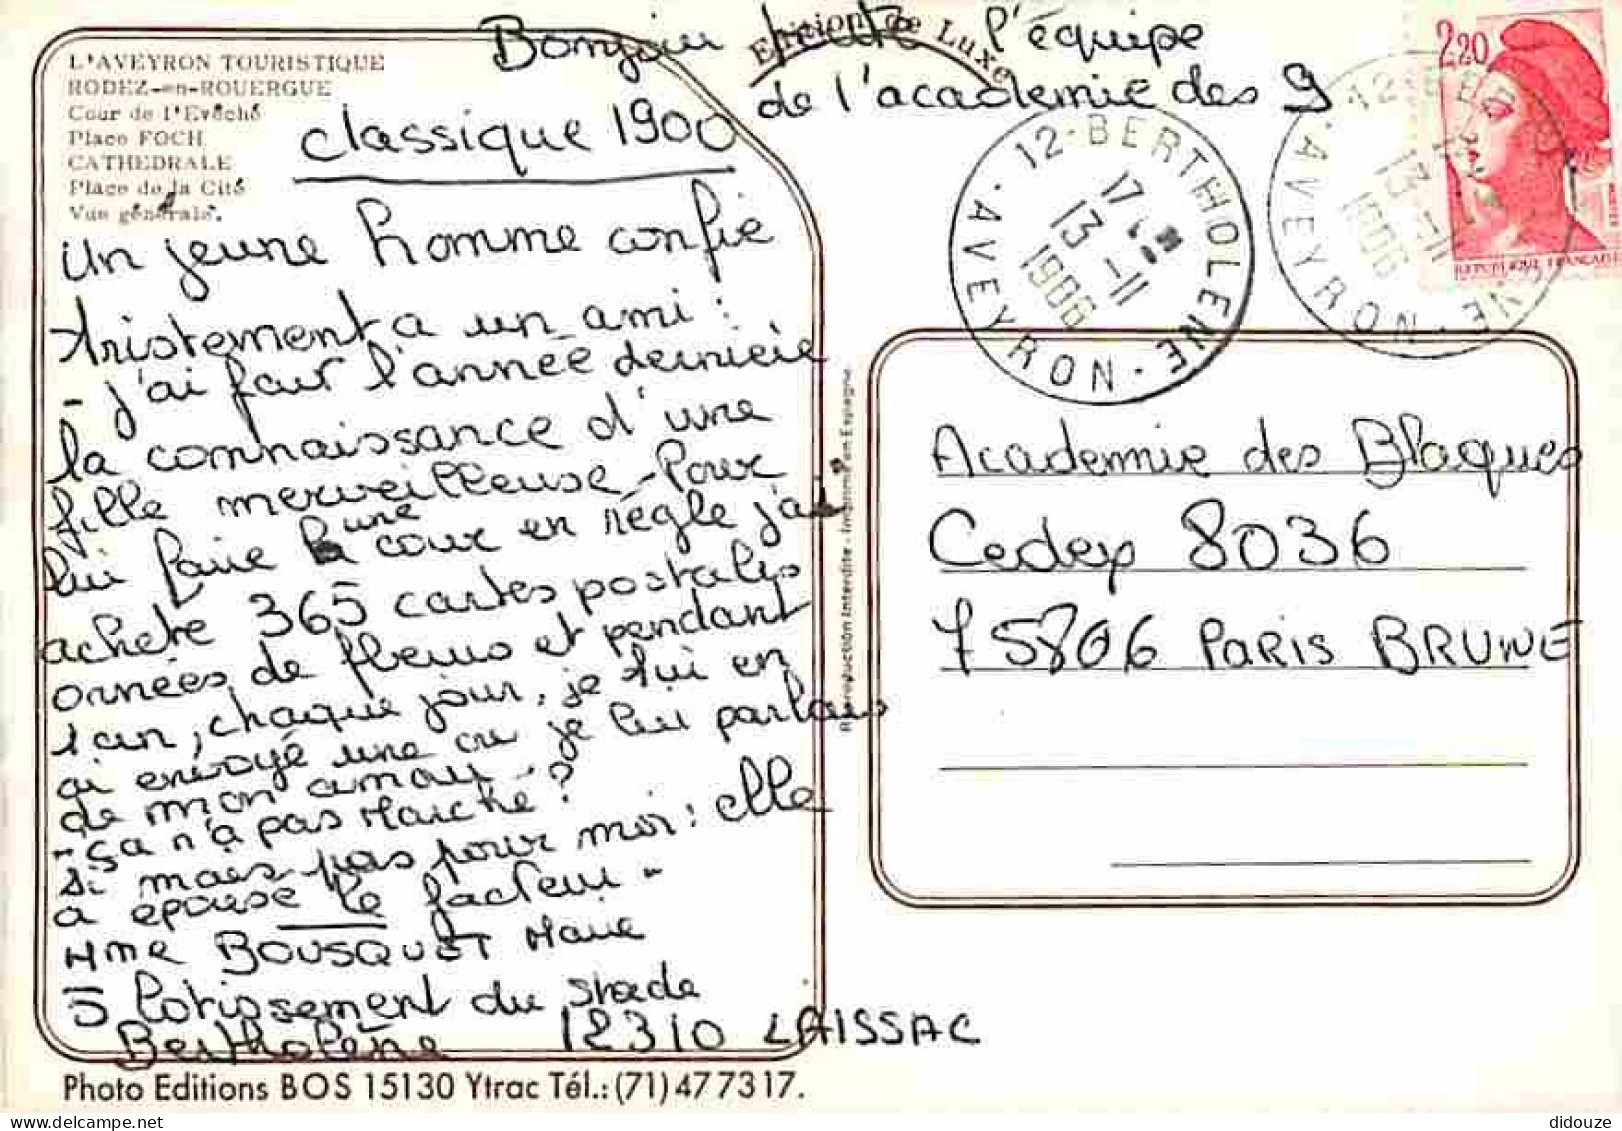 L'AVEYRON TOURISTIQUE
RODEZ-en-ROUERGUE
Cour de l'Evêché
Place FOCH
CATHEDRALE
Place de la Cité
Vue générale.
Edition de Luxe
Bonjour toute l'équipe
de l'académie des 9
classique 1900
Un jeune homme confie
tristement a un ami :
- j'ai fait l'année derniere
la connaissance d'une
fille merveilleuse - Pour
lui faire une cour en règle j'ai
acheté 365 cartes postales
ornées de fleurs et pendant
1 an, chaque jour, je lui en
ai envoyé une ou je lui parlais
de mon amour -
- ça n'a pas Marché ?
si mais pas pour moi : elle
a épousé le facteur -
Mme BOUSQUET Marie
5 lotissement du stade
Bertholène 12310 LAISSAC
Photo Editions BOS 15130 Ytrac Tél.: (71) 47 73 17.
Reproduction Interdite - Imprimé en Espagne
12 - BERTHOLENE
17
13 -11
1986
AVEYRON
2,20
REPUBLIQUE FRANÇAISE
12 - BERTHOLENE
13 -11
1986
AVEYRON
Academie des Blagues
Cedex 8036
75806 PARIS BRUNE
didouze